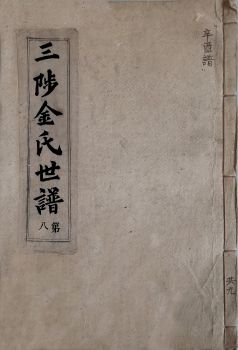 三陟金氏世譜
第八
辛酉譜
共九